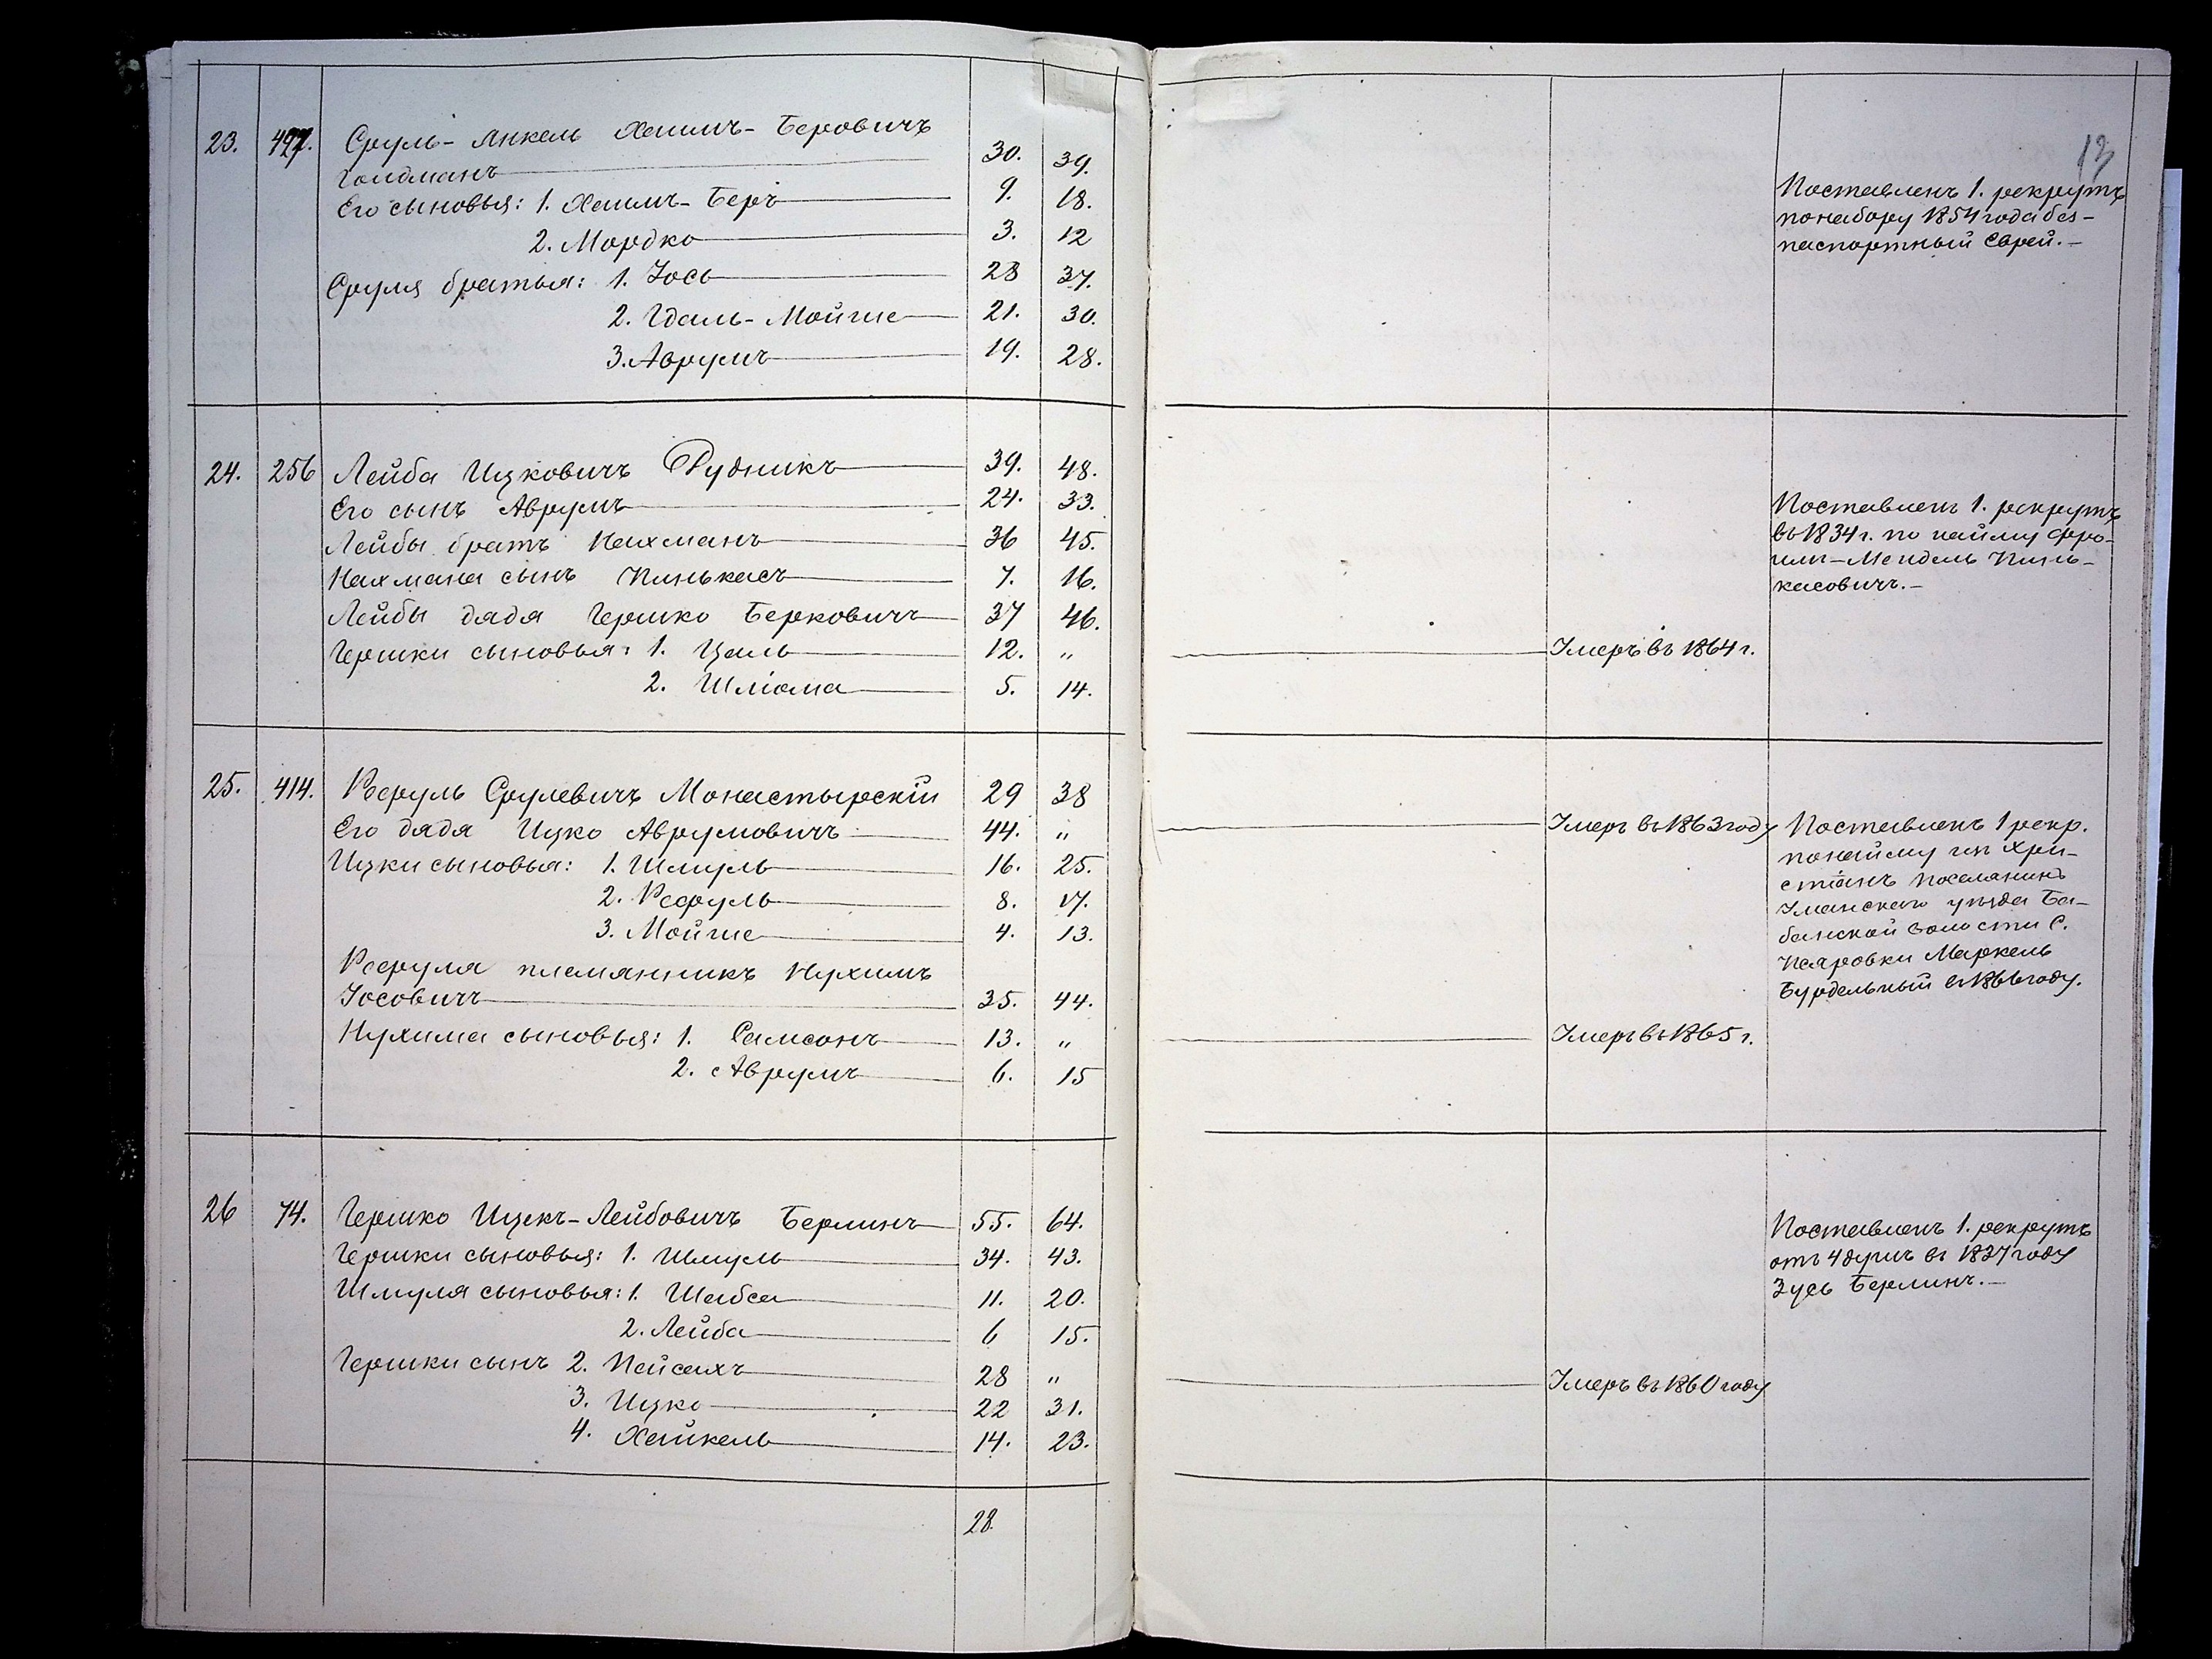 13
23. 497. Сруль-Янкель Хаимъ-Беровичъ
Гойдманъ 30. 39.
Его сыновья: 1. Хаимъ-Беръ 9. 18.
2. Мордко 3. 12
Сруля братья: 1. Іось 28 37.
2. Гдаль-Мойше 21. 30.
3. Аврумъ 19. 28.
Поставленъ 1. рекрутъ
по набору 1854 года без-
паспортный Еврей.-
24. 256 Лейба Ицковичъ Рудникъ 39. 48.
Его сынъ Аврумъ 24. 33.
Лейбы братъ Нахманъ 36 45.
Нахмана сынъ Пинькасъ 7. 16.
Лейбы дядя Гершко Берковичъ 37 46.
Гершки сыновья: 1. Цаль 12. " Умеръ въ 1864 г.
2. Шліома 5. 14.
Поставленъ 1. рекрутъ
въ 1834 г. по найму Фро-
имъ-Мендель Пинь-
касовичъ.-
25. 414. Рафуль Срулевичъ Монастырскій 29 38
Его дядя Ицко Аврумовичъ 44. " Умеръ въ 1863 году
Ицки сыновья: 1. Шмуль 16. 25.
2. Рафуль 8. 17.
3. Мойше 4. 13.
Рафуля племянникъ Нухимъ
Іосовичъ 35. 44.
Нухима сыновья: 1. Самсонъ 13. " Умеръ въ 1865 г.
2. Аврумъ 6. 15
Поставленъ 1 рекр.
по найму изъ Хри-
стіанъ поселянинъ
Уманскаго уѣзда Ба-
банской волости С.
Маркель
Бурдельный въ 1866 году.
26 74. Гершко Ицекъ-Лейбовичъ Берлинъ 55. 64.
Гершки сыновья: 1. Шмуль 34. 43.
Шмуля сыновья: 1. Шабса 11. 20.
2. Лейба 6 15.
Гершки сынъ 2. Пейсахъ 28 " Умеръ въ 1860 году
3. Ицко 22 31.
4. Хайкель 14. 23.
Поставленъ 1. рекрутъ
отъ 4 душъ въ 1837 году
Зусь Берлинъ.-
28.